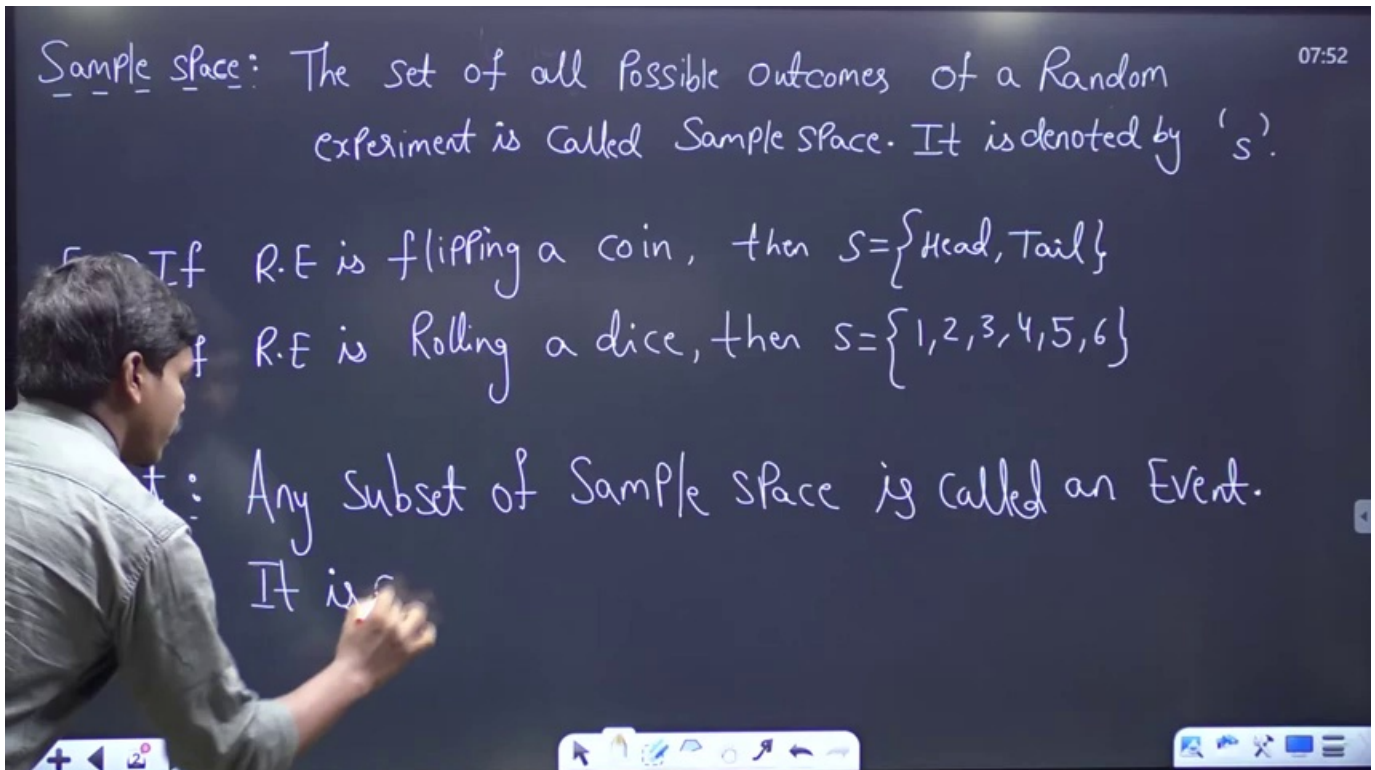 Sample space: The set of all Possible outcomes of a Random
07:52
experiment is Called Sample space. It is denoted by 's'.
If R.E is flipping a coin, then S={Head, Tail}
R.E is Rolling a dice, then S={1,2,3,4,5,6}
: Any subset of Sample space is called an Event.
It is
2